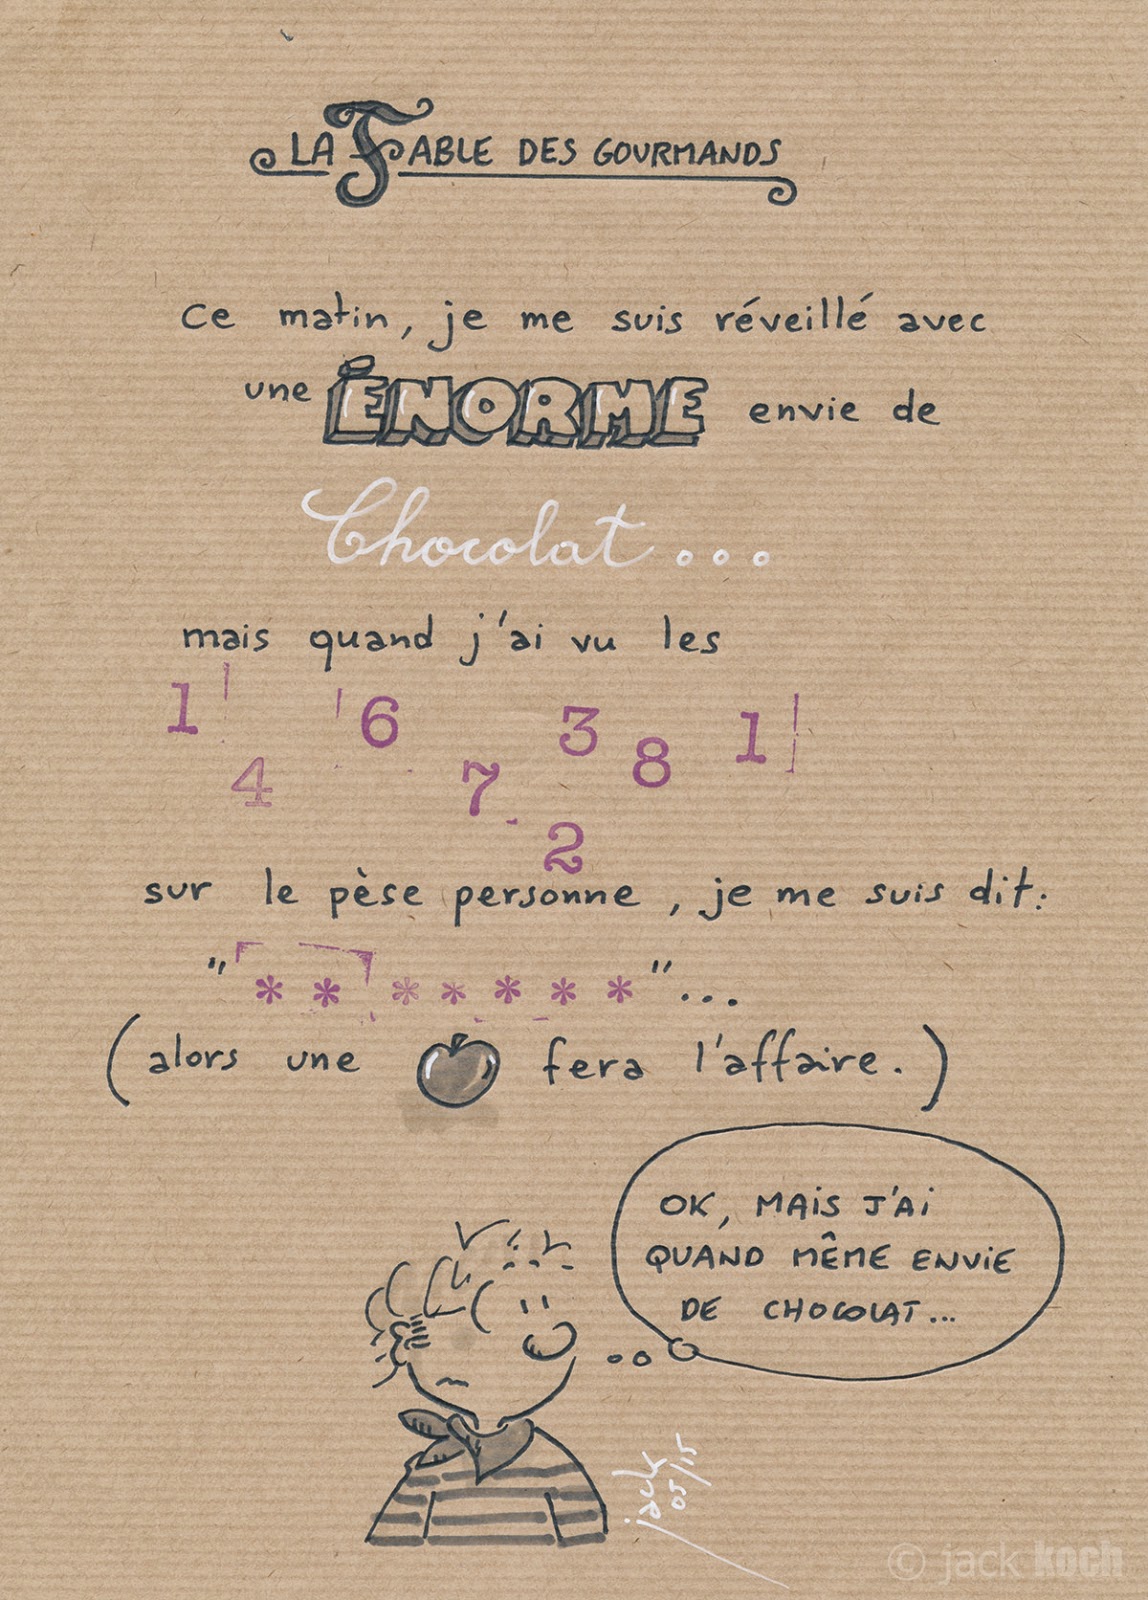 LA FABLE DES GOURMANDS
ce matin, je me suis réveillé avec
une ÉNORME envie de
Chocolat...
mais quand j'ai vu les
1 4 6 7 3 2 8 1
sur le pèse personne, je me suis dit:
"*******"...
(alors une fera l'affaire.)
OK, MAIS J'AI
QUAND MÊME ENVIE
DE CHOCOLAT...
jack
05/15
© jack koch